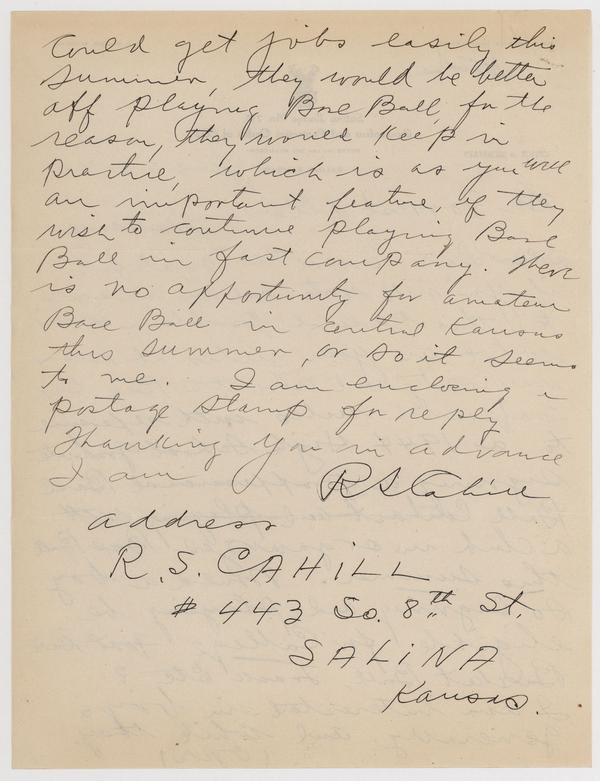 Could get jobs easily this
summer, they would be better
off playing Base Ball, for the
reason, they would keep in
practice, which is as you will
an important feature, if they
wish to continue playing Base
Ball in fast company. There
is no opportunity for amateur
Base Ball in central Kansas
this summer, or so it seems
to me. I am enclosing a
postage stamp for reply
Thanking you in advance
I am R S Cahill
address
R. S. CAHILL
# 443 So. 8th St.
SALINA
Kansas.